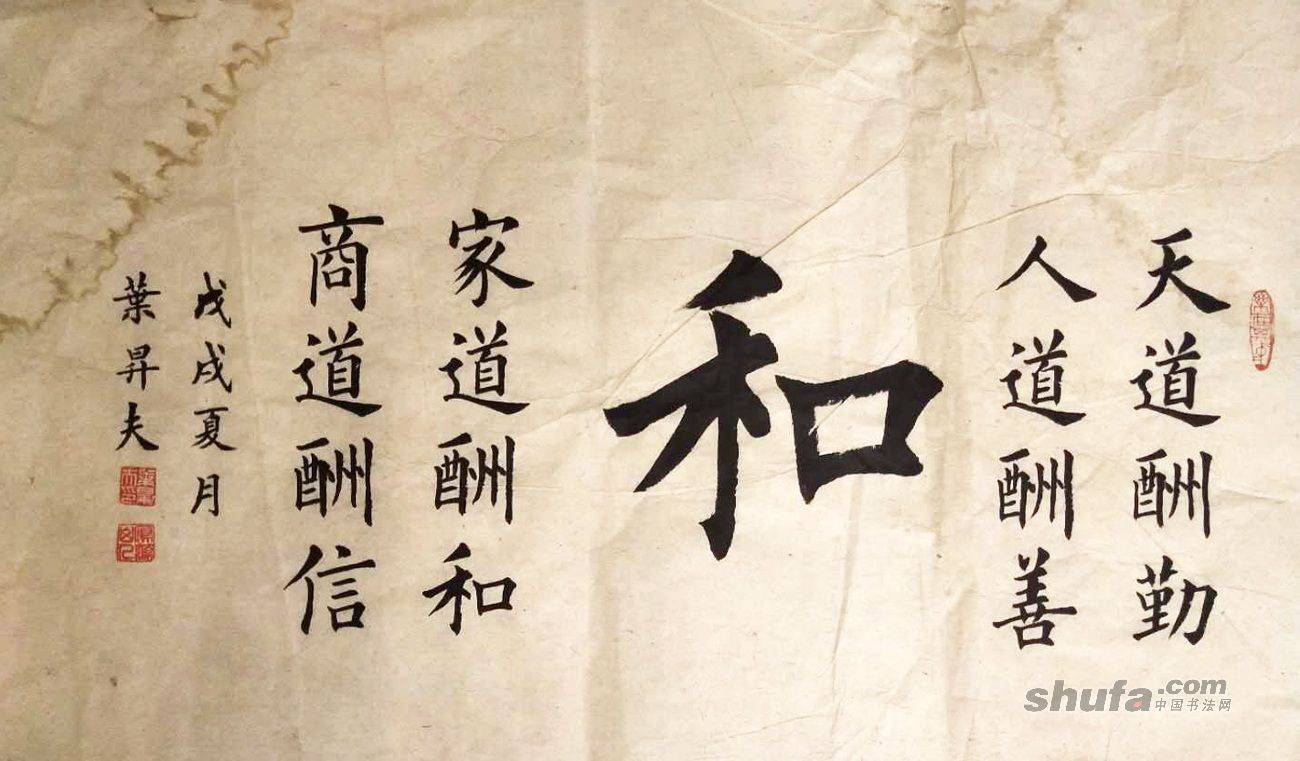 天道酬勤
人道酬善
和
家道酬和
商道酬信
戊戌夏月
葉昇夫
shufa.com
中国书法网